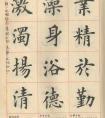 業精於勤
澡身浴德
激濁揚清